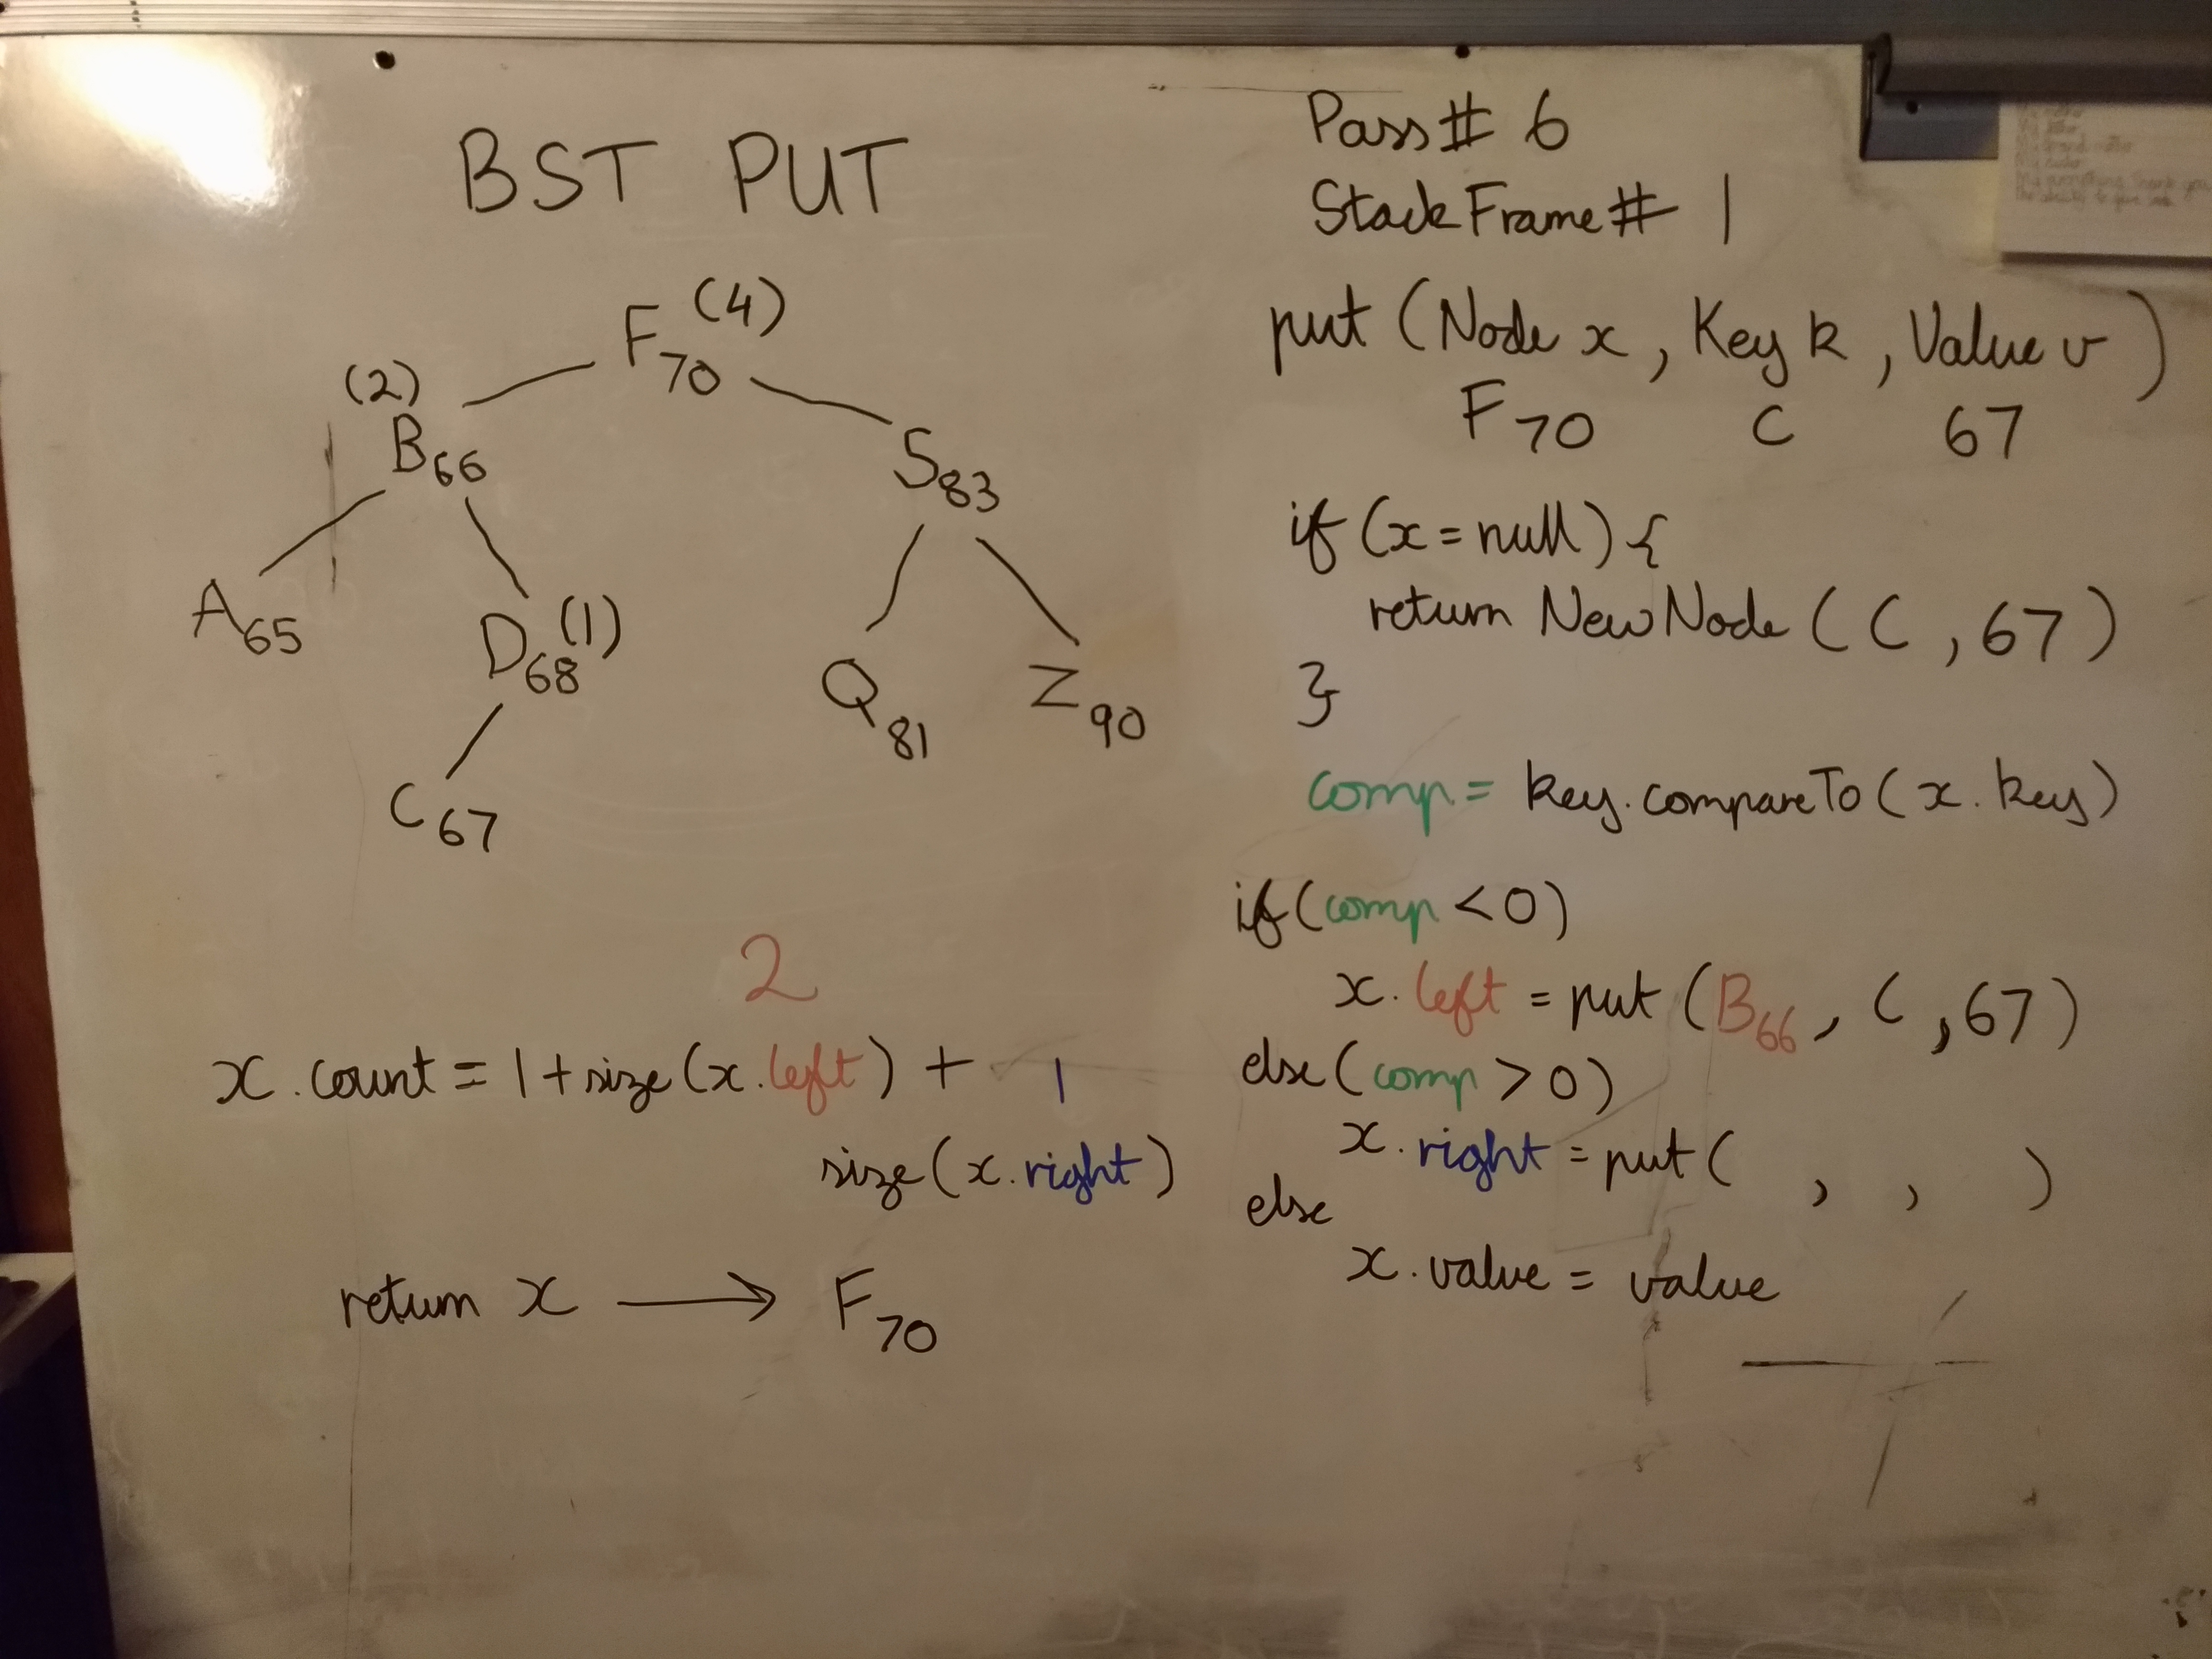 BST PUT
F70 (4)
(2)
B66
S83
A65
D68 (1)
Q81
Z90
C67
2
x.count = 1 + size(x.left) + 1
size(x.right)
return x → F70
Pass# 6
StackFrame# 1
put (Node x, Key k, Value v)
F70 C 67
if (x = null) {
return NewNode (C, 67)
}
comp = key.compareTo(x.key)
if (comp < 0)
x.left = put (B66, C, 67)
else (comp > 0)
x.right = put ( , , )
else
x.value = value